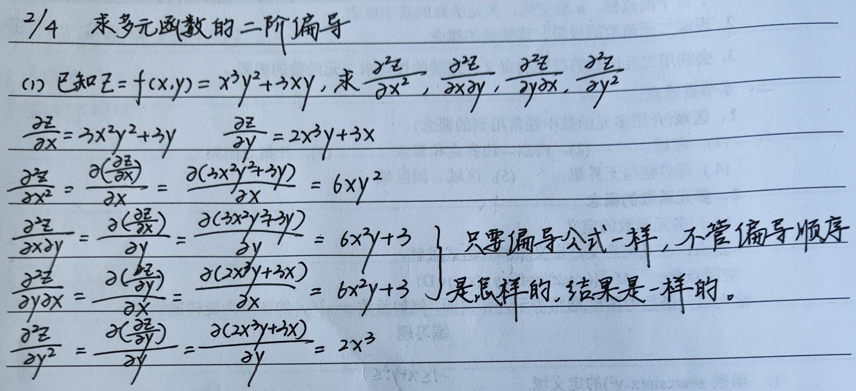 2/4 求多元函数的二阶偏导
(1) 已知z=f(x,y)=x³y²+3xy, 求 ∂²z/∂x², ∂²z/∂x∂y, ∂²z/∂y∂x, ∂²z/∂y²
∂z/∂x=3x²y²+3y ∂z/∂y=2x³y+3x
∂²z/∂x² = ∂(∂z/∂x)/∂x = ∂(3x²y²+3y)/∂x = 6xy²
∂²z/∂x∂y = ∂(∂z/∂x)/∂y = ∂(3x²y²+3y)/∂y = 6x²y+3 只要偏导公式一样, 不管偏导顺序
∂²z/∂y∂x = ∂(∂z/∂y)/∂x = ∂(2x³y+3x)/∂x = 6x²y+3 是怎样的, 结果是一样的。
∂²z/∂y² = ∂(∂z/∂y)/∂y = ∂(2x³y+3x)/∂y = 2x³